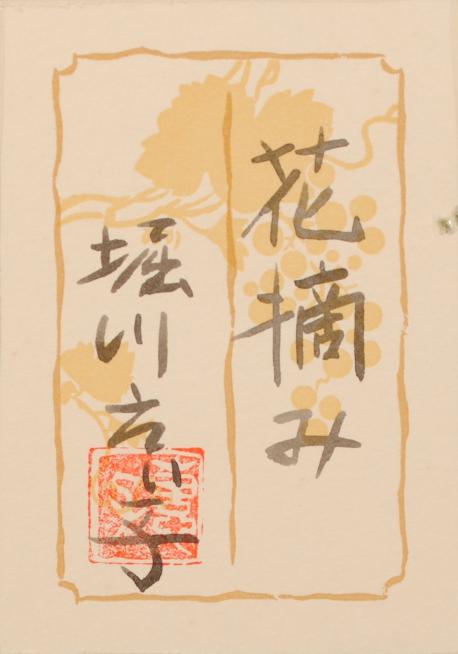 花摘み
堀川えい子